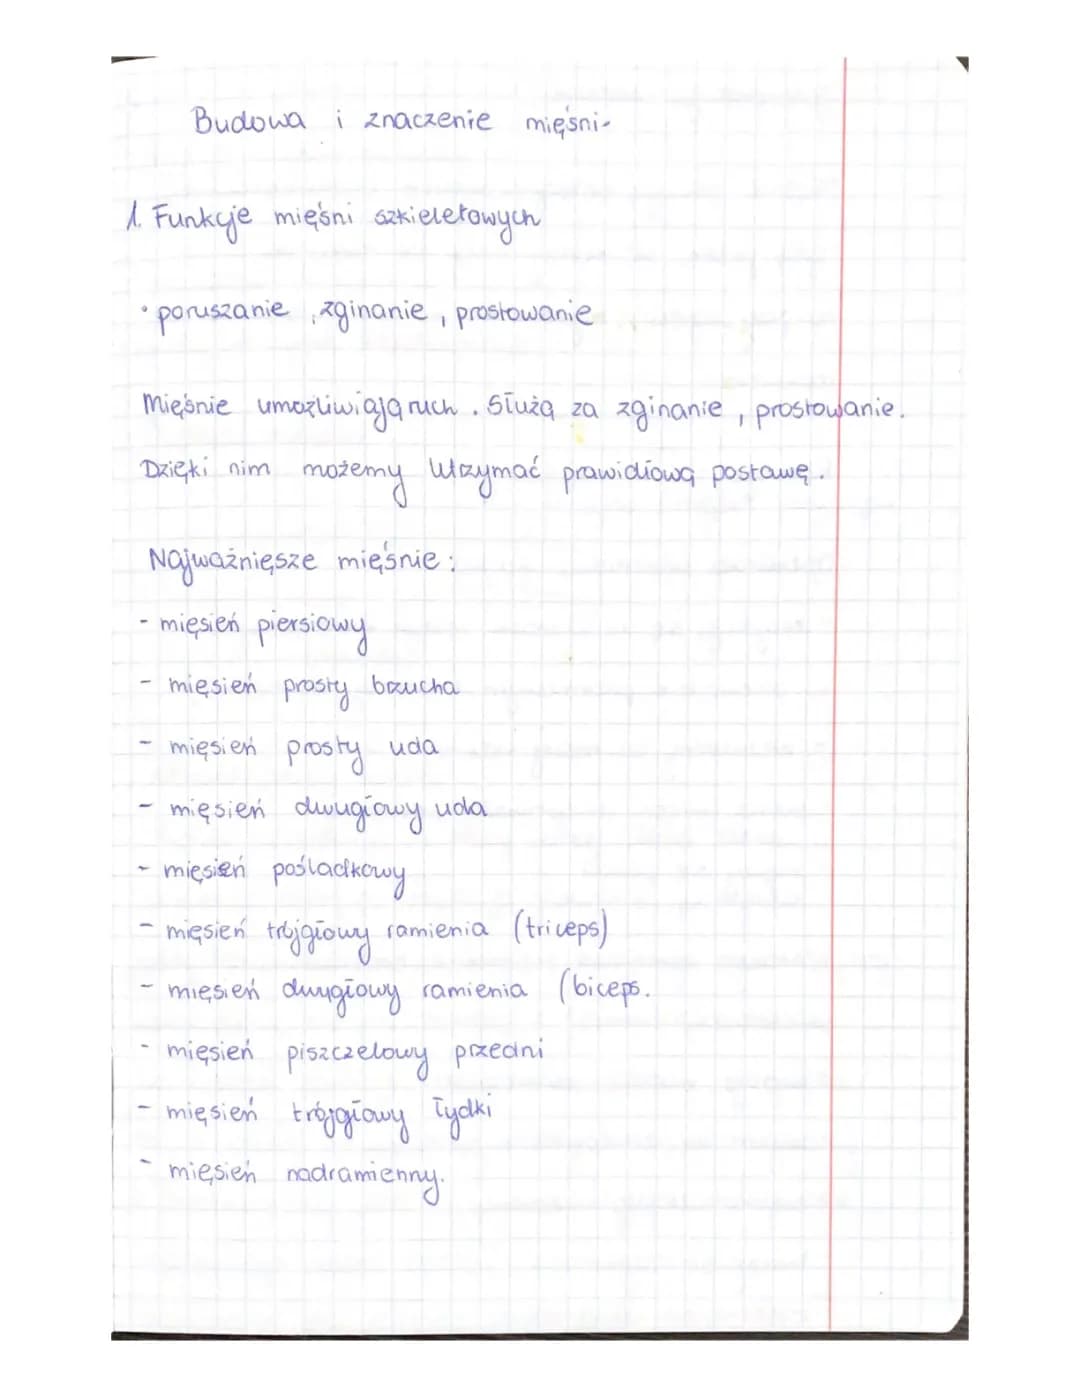 Budowa i znaczenie mięśni-
1. Funkcje mięśni szkieletowych
• poruszanie, zginanie, prostowanie
Mięśnie umożliwiają ruch. Służą za zginanie, prostowanie.
Dzięki nim możemy utrzymać prawidłową postawę.
Najważnięsze mięśnie:
- mięsień piersiowy
- mięsień prosty brzucha
- mięsień prosty uda
- mięsień dwugłowy uda
- mięsień pośladkowy
- mięsień trójgłowy ramienia (triceps)
- mięsień dwugłowy ramienia (biceps.
- mięsień piszczelowy przedni
- mięsień trójgłowy łydki
- mięsień nadramienny.